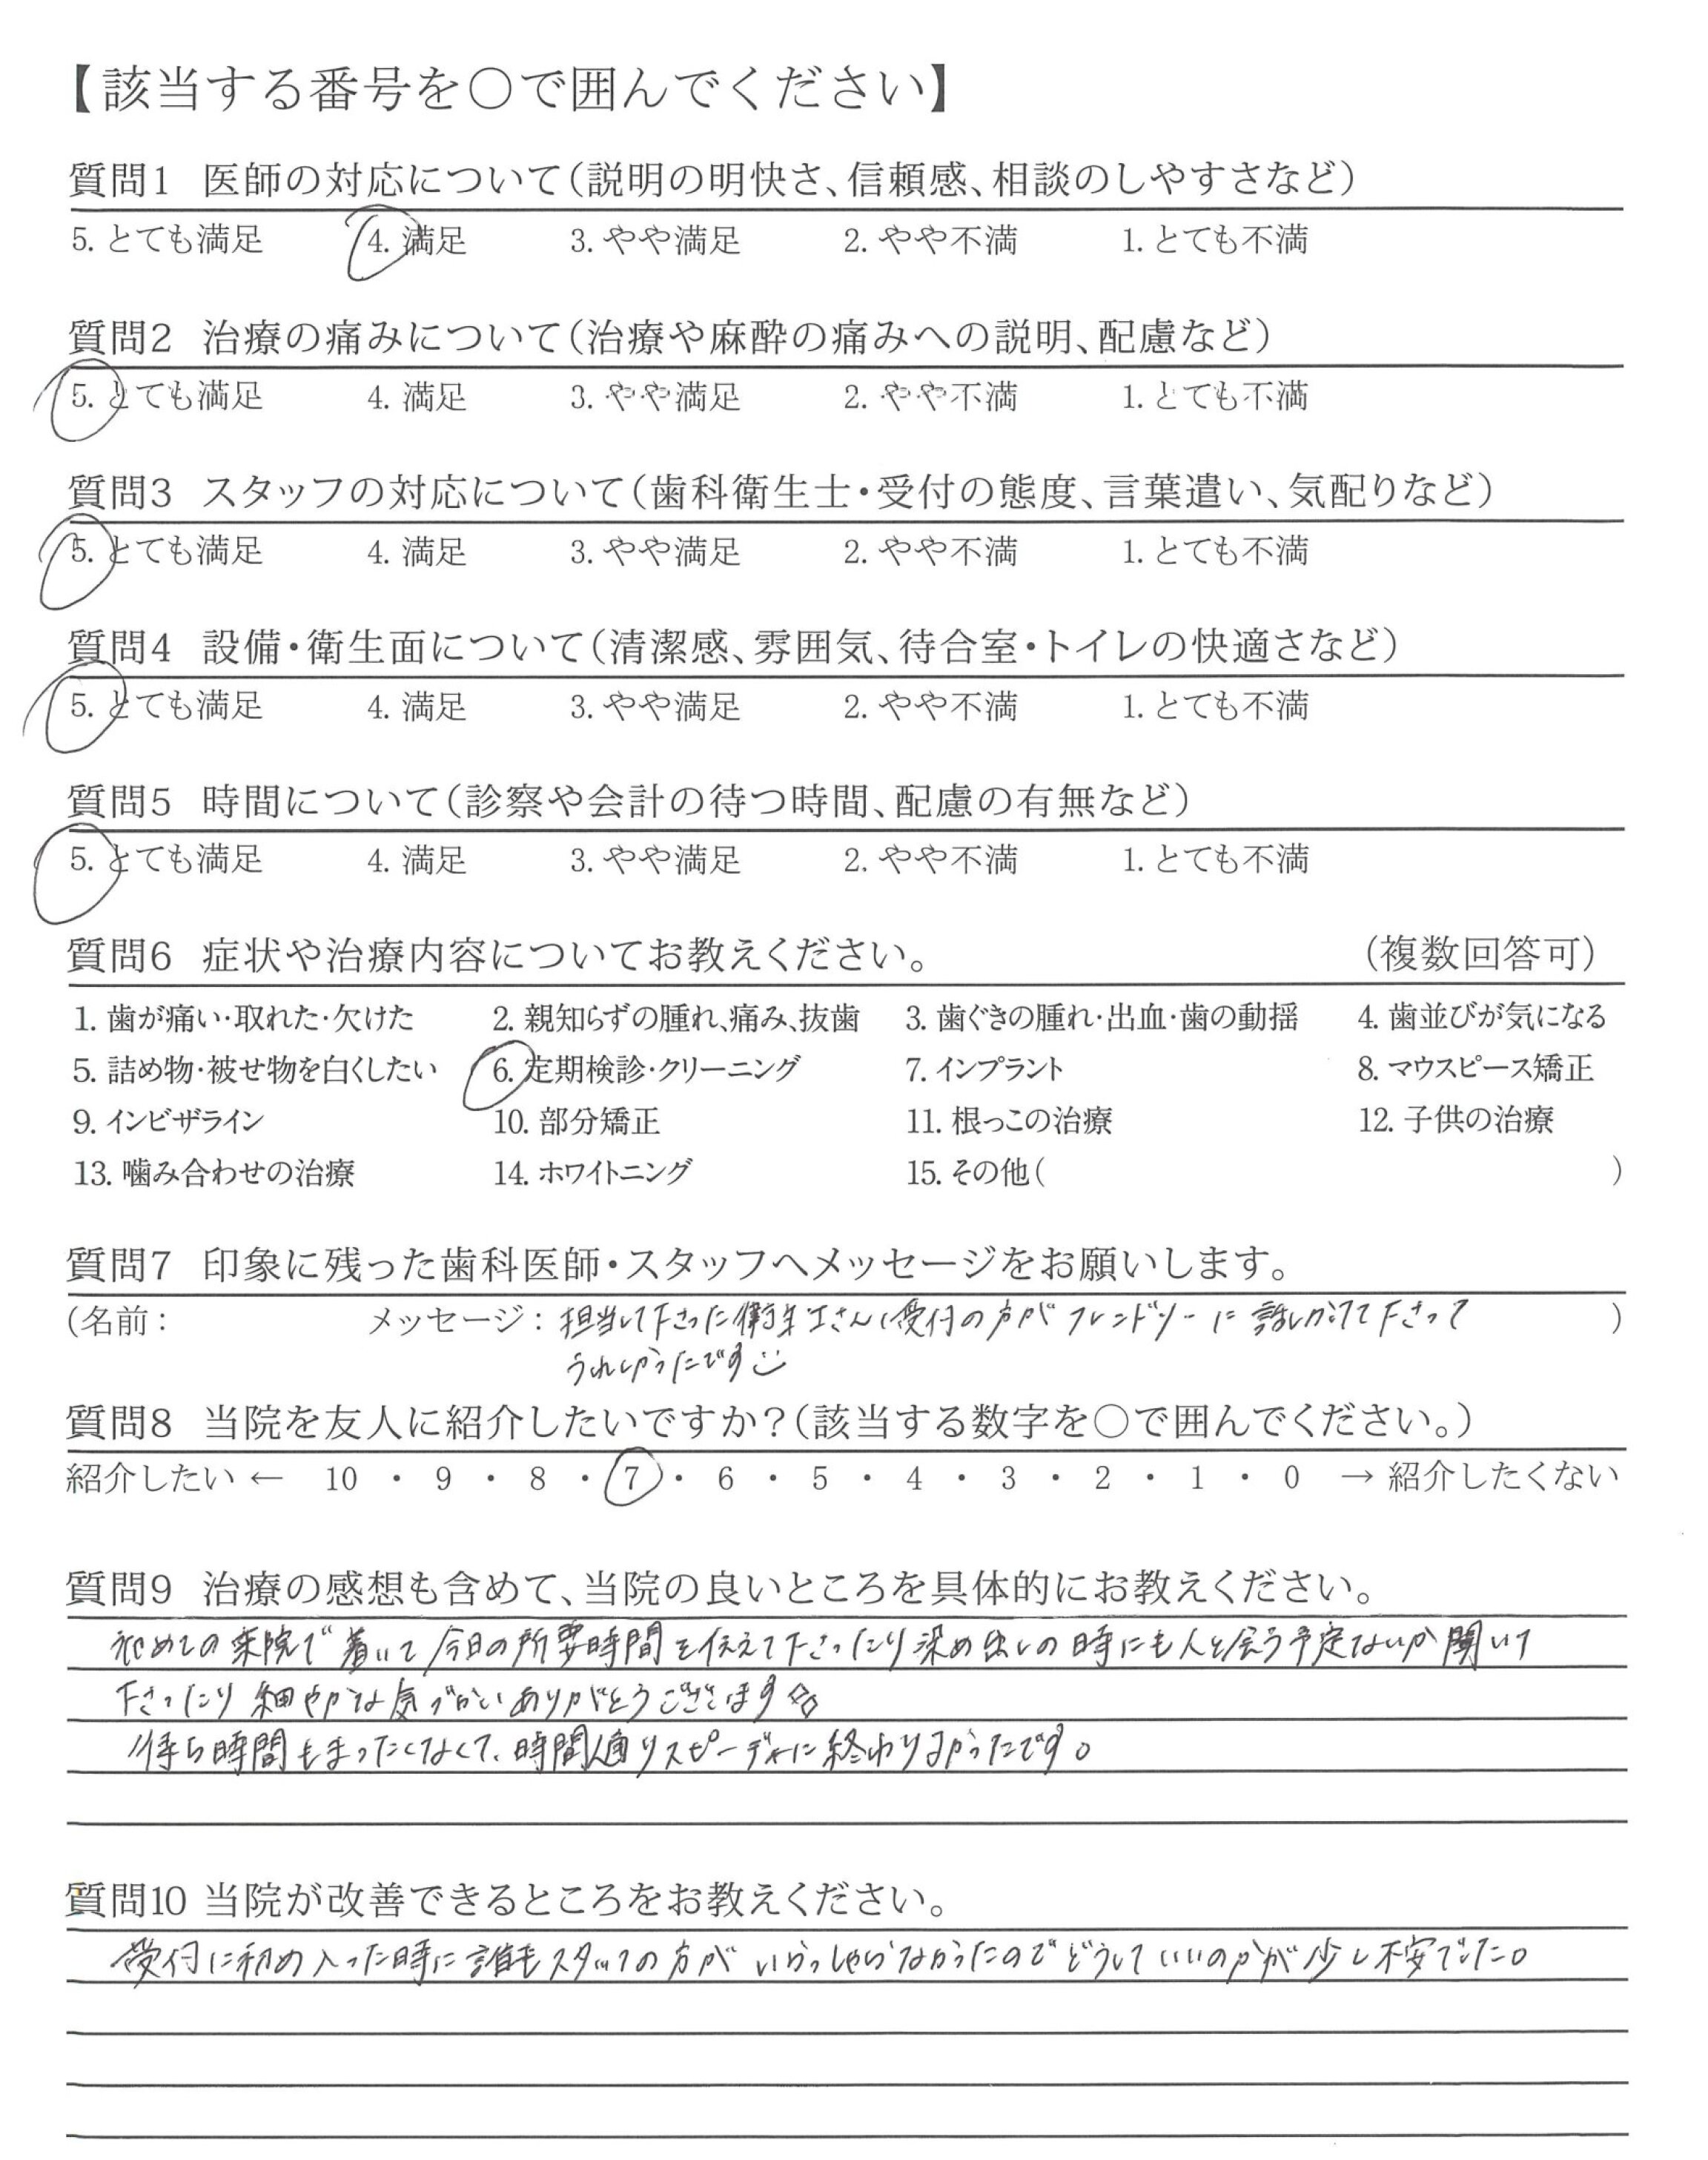 【該当する番号を○で囲んでください】
質問1 医師の対応について（説明の明快さ、信頼感、相談のしやすさなど）
5. とても満足 4. 満足 3. やや満足 2. やや不満 1. とても不満
質問2 治療の痛みについて（治療や麻酔の痛みへの説明、配慮など）
5. とても満足 4. 満足 3. やや満足 2. やや不満 1. とても不満
質問3 スタッフの対応について（歯科衛生士・受付の態度、言葉遣い、気配りなど）
5. とても満足 4. 満足 3. やや満足 2. やや不満 1. とても不満
質問4 設備・衛生面について（清潔感、雰囲気、待合室・トイレの快適さなど）
5. とても満足 4. 満足 3. やや満足 2. やや不満 1. とても不満
質問5 時間について（診察や会計の待つ時間、配慮の有無など）
5. とても満足 4. 満足 3. やや満足 2. やや不満 1. とても不満
質問6 症状や治療内容についてお教えください。 （複数回答可）
1. 歯が痛い・取れた・欠けた 2. 親知らずの腫れ、痛み、抜歯 3. 歯ぐきの腫れ・出血・歯の動揺 4. 歯並びが気になる
5. 詰め物・被せ物を白くしたい 6. 定期検診・クリーニング 7. インプラント 8. マウスピース矯正
9. インビザライン 10. 部分矯正 11. 根っこの治療 12. 子供の治療
13. 噛み合わせの治療 14. ホワイトニング 15. その他（ ）
質問7 印象に残った歯科医師・スタッフへメッセージをお願いします。
（名前： メッセージ：担当して下さった衛生士さん、受付の方がフレンドリーに話しかけて下さって ）
うれしかったです
質問8 当院を友人に紹介したいですか？（該当する数字を○で囲んでください。）
紹介したい ← 10 ・ 9 ・ 8 ・ 7 ・ 6 ・ 5 ・ 4 ・ 3 ・ 2 ・ 1 ・ 0 → 紹介したくない
質問9 治療の感想も含めて、当院の良いところを具体的にお教えください。
初めての来院で着いて今日の所要時間を伝えて下さったり染め出しの時にも人と会う予定ないか聞いて
下さったり細やかな気づかいありがとうございます
待ち時間もまったくなくて、時間通りスピーディーに終わりよかったです。
質問10 当院が改善できるところをお教えください。
受付に初め入った時に誰もスタッフの方がいらっしゃらなかったのでどうしていいのかが少し不安でした。